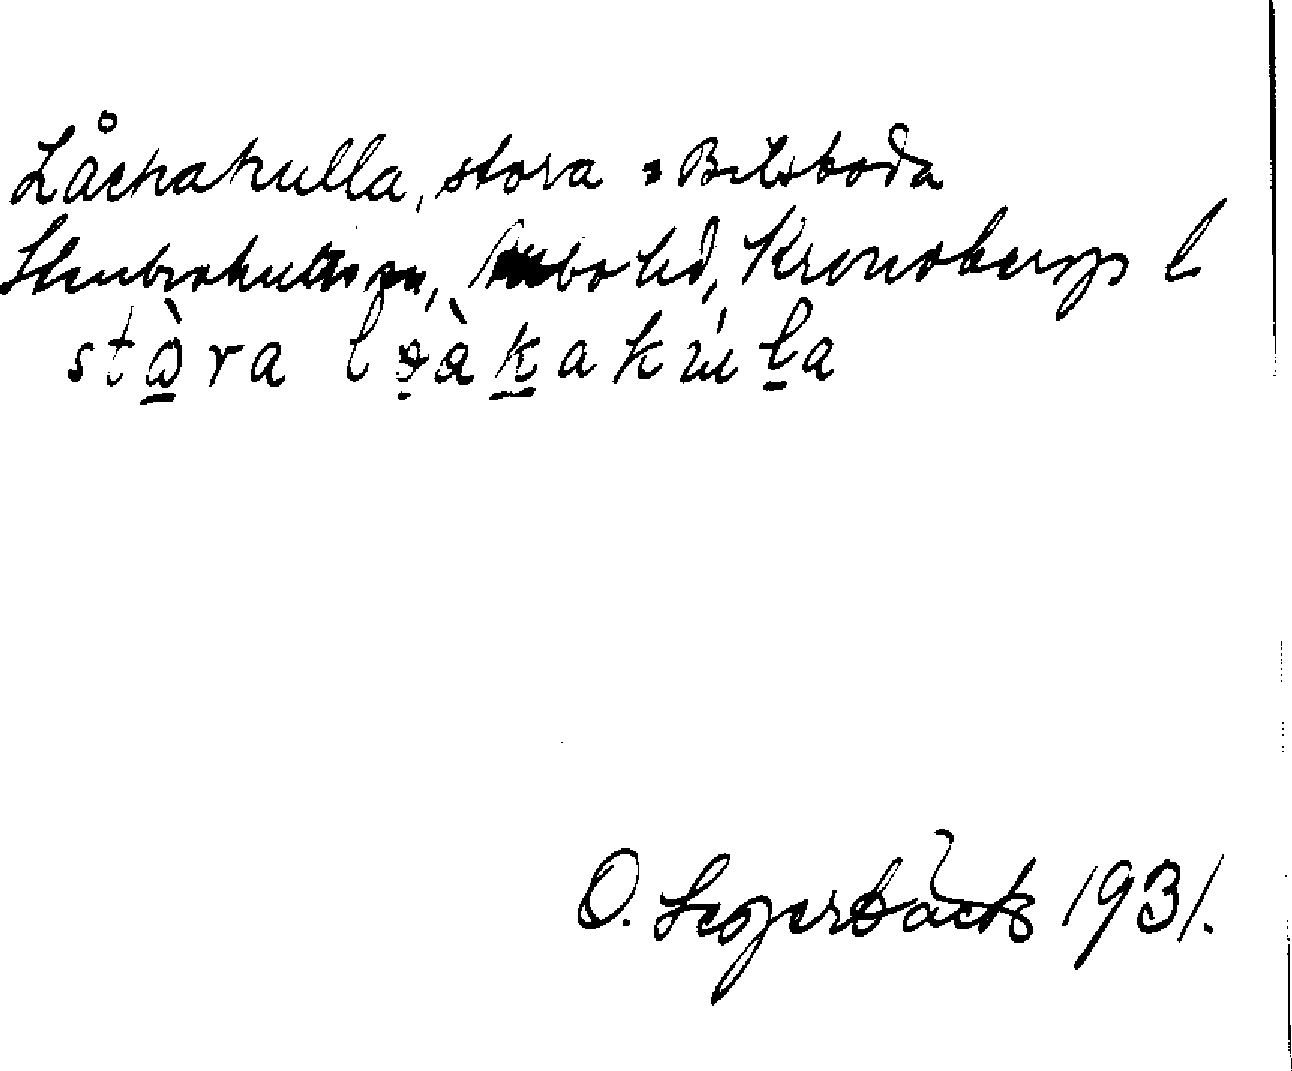 Låckakulla, stora = Bilsboda
Stenbrohults sn, Allbo hd, Kronobergs l
stòra låàkakúla
O. Segerbäck 1931.